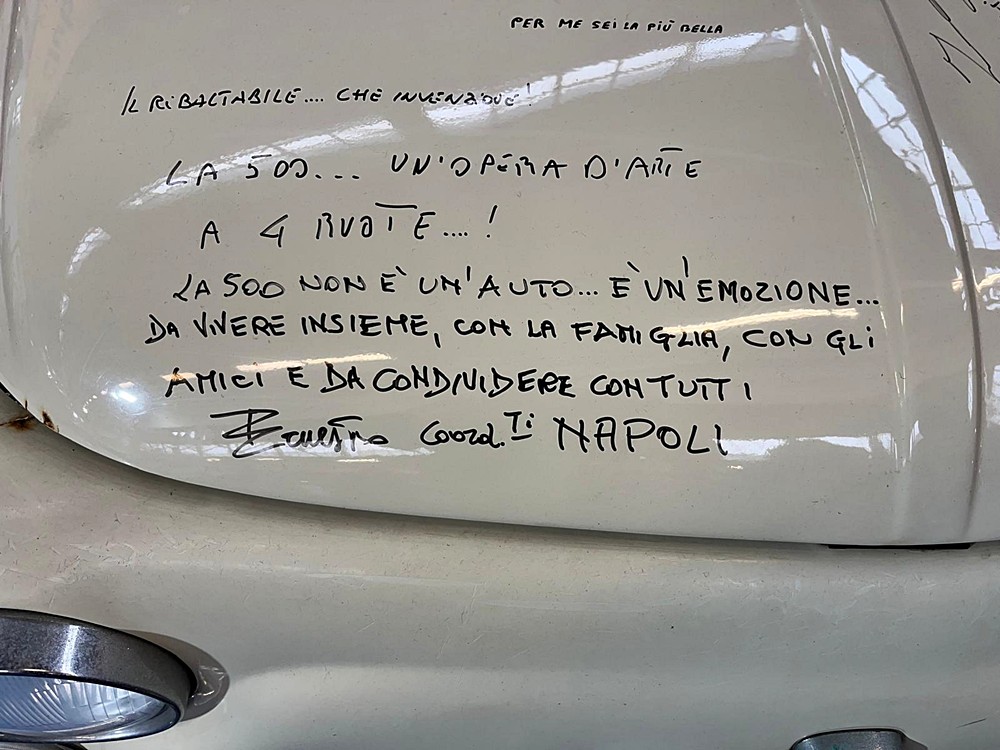 PER ME SEI LA PIÙ BELLA
IL RIBALTABILE.... CHE INVENZIONE!
LA 500... UN'OPERA D'ARTE
A 4 RUOTE....!
LA 500 NON È UN'AUTO... È UN'EMOZIONE...
DA VIVERE INSIEME, CON LA FAMIGLIA, CON GLI
AMICI E DA CONDIVIDERE CON TUTTI
Ernestro Coord.Ti NAPOLI